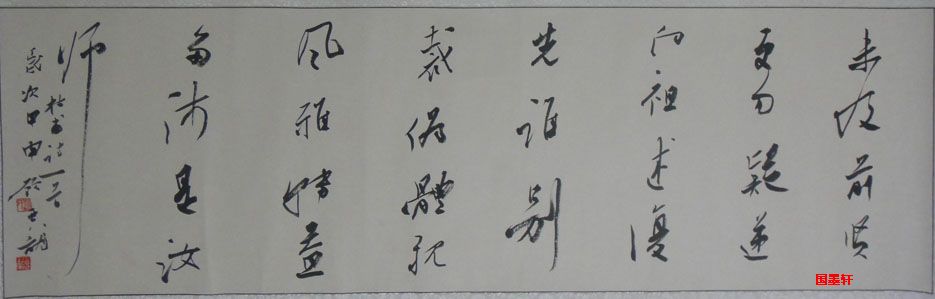 未及前贤
更勿疑递
相祖述復
先谁别
裁偽體親
风雅转益
多师是汝
师
杜甫诗一首
歲次甲申
国墨轩